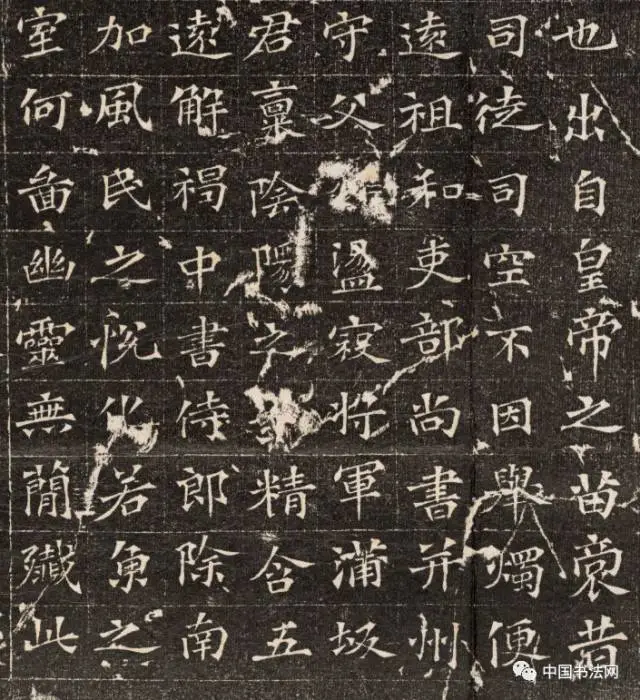 也出自皇帝之苗裔昔
司徒司空不因舉燭便
遠祖和吏部尚書并州
守父盪寇將軍蒲坂
君稟陰陽之精含五
遠解褐中書侍郎除南
加風民之悅化若魚之
室何啚幽靈無簡殲此
中国书法网